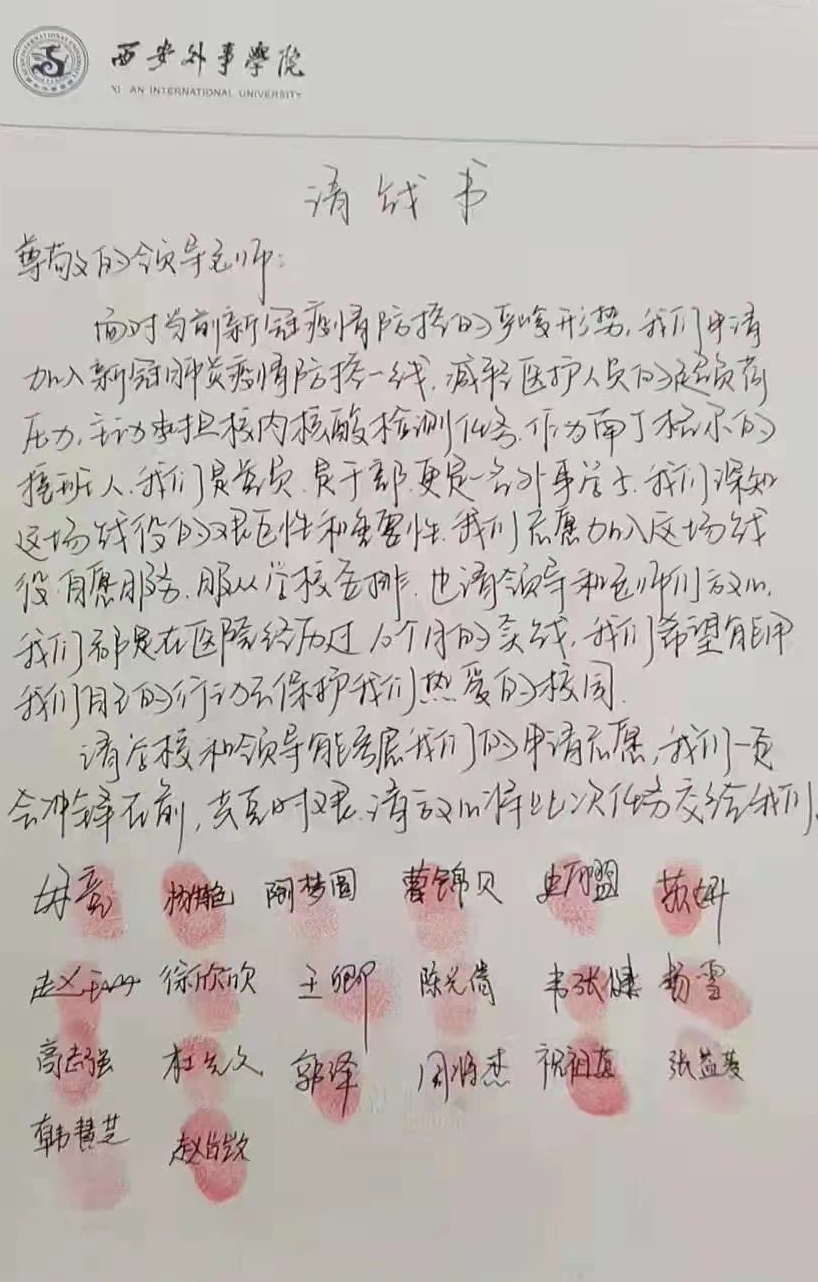 西安外事学院
XI'AN INTERNATIONAL UNIVERSITY
请战书
尊敬的领导老师:
面对当前新冠疫情防控的严峻形势,我们申请
加入新冠肺炎疫情防控一线,减轻医护人员的超负荷
压力,主动承担校内核酸检测任务,作为南丁格尔的
接班人,我们是党员,是干部,更是一名外事学子,我们深知
这场战役的艰巨性和重要性,我们志愿加入这场战
役,自愿服务,服从学校安排,也请领导和老师们放心,
我们都是在医院经历过10个月的实战,我们希望能用
我们自己的行动去保护我们热爱的校园.
请学校和领导能考虑我们的申请志愿,我们一定
会冲锋在前,共克时艰,请放心将此次任务交给我们.
杨艳 阚梦圆 曹锦贝
赵 徐欣欣 王卿 陈光倩 韦张健 杨雪
高志强 杜允文 郭泽 周将杰 祝祖 张益
韩慧芝 赵